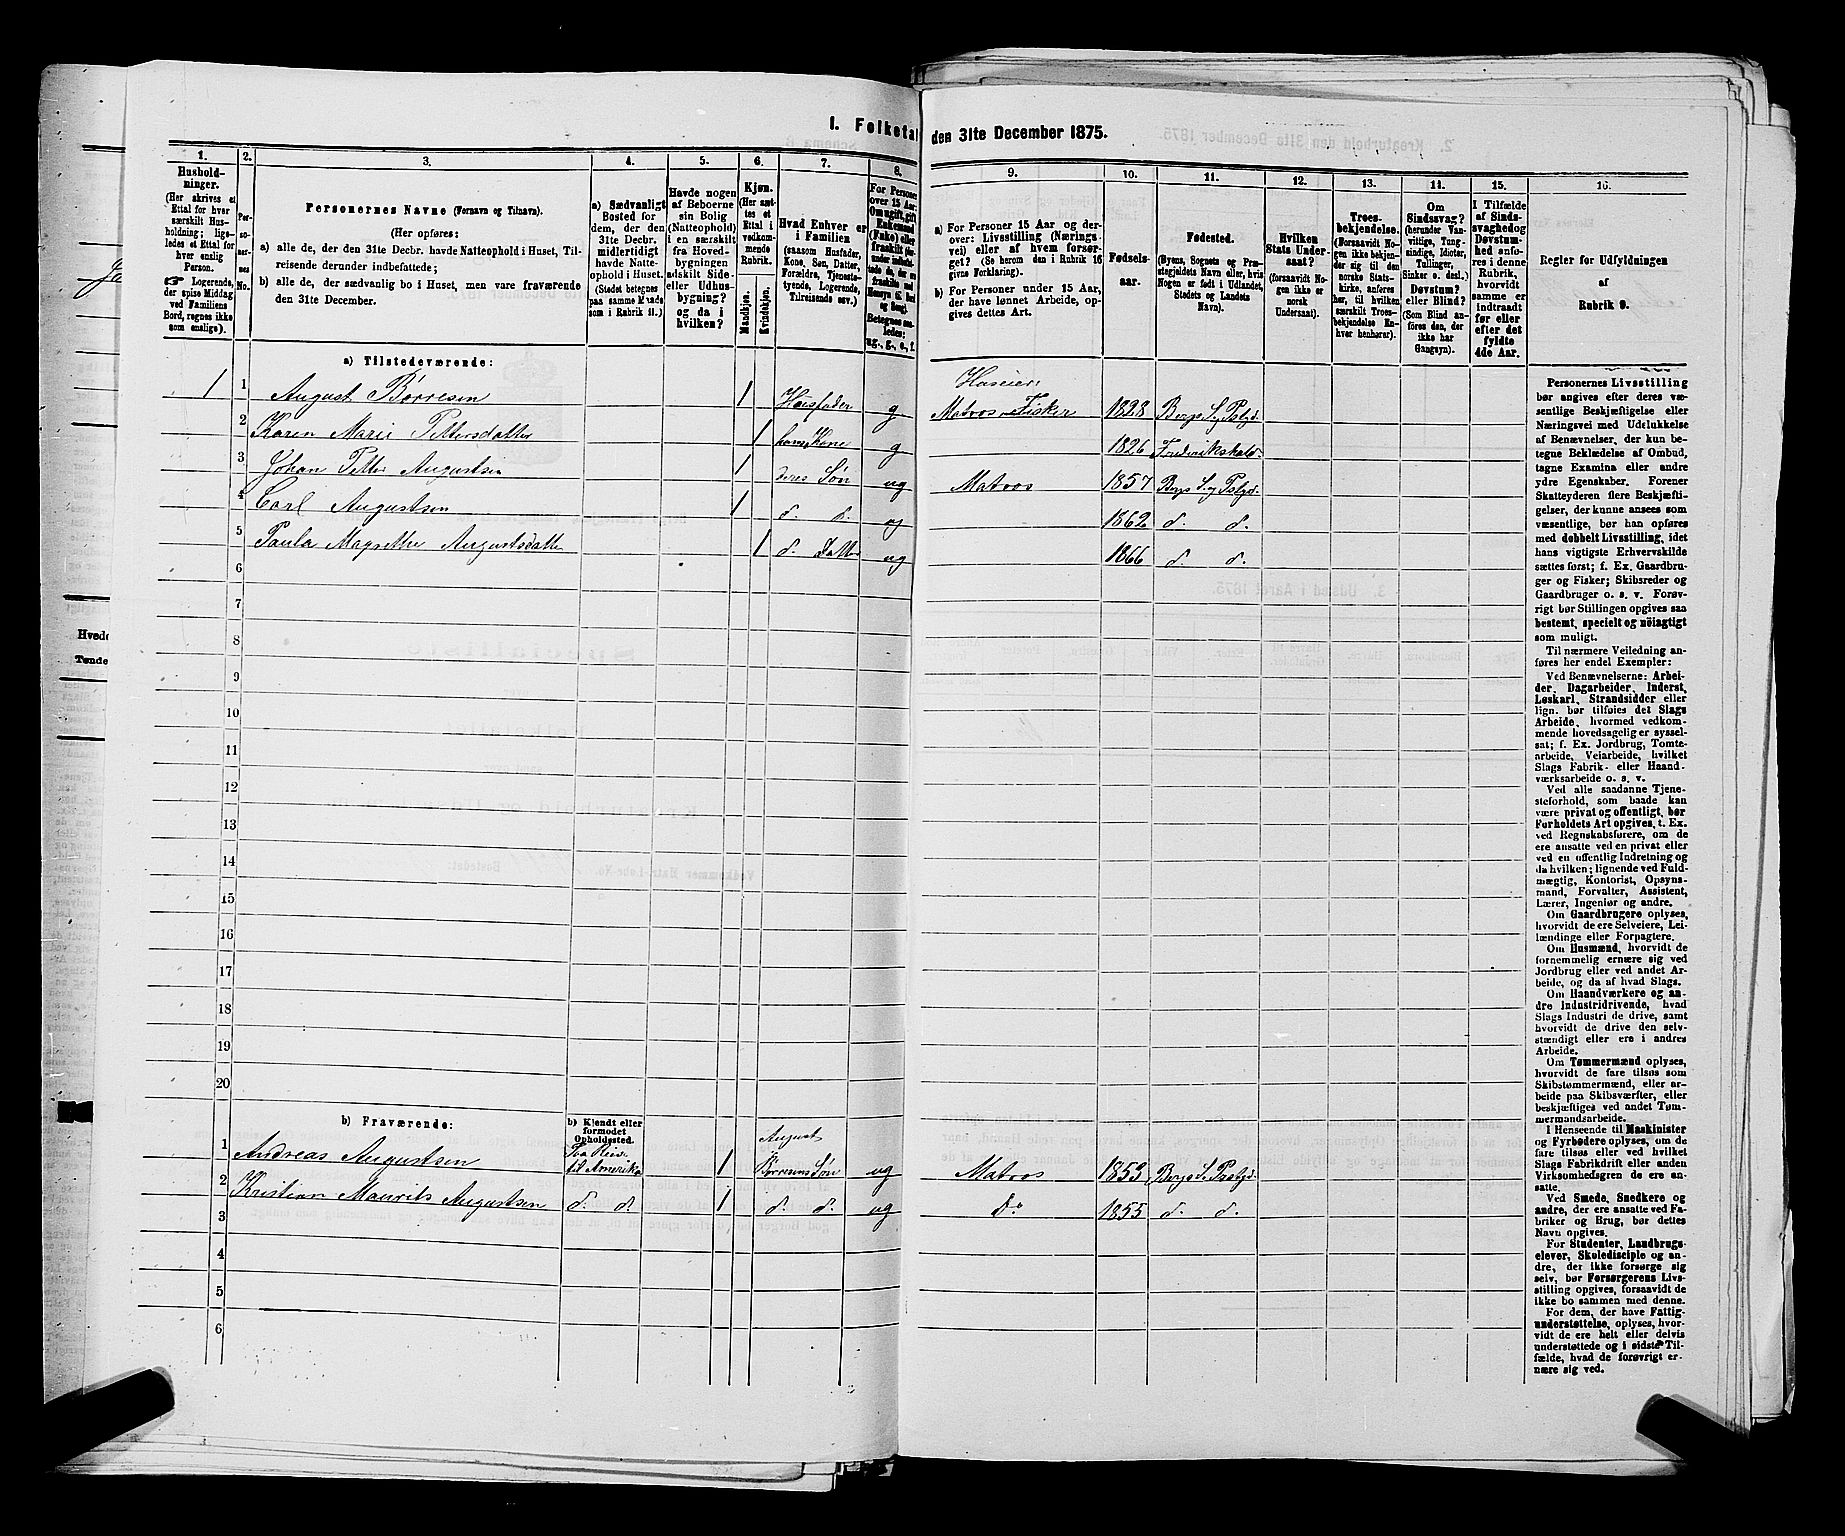 I. Folketal den 31te December 1875.
1.
Husholdninger.
(Her skrives et Ettal for hver særskilt Husholdning; ligeledes et Ettal for hver enslig Person.
Logerende, der spise Middag ved Familiens Bord, regnes ikke som enslige).
2.
Personernes No.
3.
Personernes Navne (Fornavn og Tilnavn).
(Her opføres:
a) alle de, der den 31te Decbr. havde Natteophold i Huset, Tilreisende derunder indbefattede;
b) alle de, der sædvanlig bo i Huset, men vare fraværende den 31te December.
4.
a) Sædvanligt Bosted for dem, der den 31te Decbr. midlertidigt havde Natteophold i Huset.
(Stedet betegnes paa samme Maade som i Rubrik 11.)
5.
Havde nogen af Beboerne sin Bolig (Natteophold) i en særskilt fra Hovedbygningen adskilt Side- eller Udhusbygning? og da i hvilken?
6.
Kjøn.
(Her sættes et Ettal i vedkommende Rubrik.
Mandkjøn.
Kvindekjøn.
7.
Hvad Enhver er i Familien
(saasom Husfader, Kone, Søn, Datter, Forældre, Tjenestetyende, Logerende, Tilreisende osv.)
8.
For Personer over 15 Aar:
9.
a) For Personer 15 Aar og derover: Livsstilling (Næringsvei) eller af hvem forsørget? (Se herom den i Rubrik 16 givne Forklaring).
b) For Personer under 15 Aar, der have lønnet Arbeide, opgives dettes Art.
10.
Fødselsaar.
11.
Fødested.
(Byens, Sognets og Præstegjeldets Navn eller, hvis Nogen er født i Udlandet, Stedets og Landets Navn).
12.
Hvilken Stats Undersaat?
(forsaavidt Nogen ikke er norsk Undersaat).
13.
Troesbekjendelse.
(Forsaavidt Nogen ikke bekjender sig til den norske Statskirke, anføres her, til hvilken særskilt Troesbekjendelse Enhver henhører).
14.
Om Sindssvag? (herunder Vanvittige, Idioter, Tungsindige, Tullinger, Sinker o. desl.) Døvstum? eller Blind? (Som Blind anføres den, der ikke har Gangsyn).
15.
I Tilfælde af Sindssvaghed og Døvstumhed anføres i denne Rubrik, hvorvidt samme er indtraadt før eller efter det fyldte 4de Aar.
16.
Regler for Udfyldningen
af
Rubrik 9.
a) Tilstedeværende:
1 1 August Børresen 1 Husfader g Huseier Matros Fisker 1828 Bergs S. Pstgd.
2 Karen Marie Pettersdatter 1 hans Kone g 1826 Frederikshald
3 Johan Petter Augustsen 1 deres Søn ug Matros 1857 Bergs S. og Pstgd.
4 Carl Augustsen 1 d. d. ug 1862 d. d.
5 Paula Magrethe Augustsdatter 1 d. Datter ug 1866 d. d.
6
7
8
9
10
11
12
13
14
15
16
17
18
19
20
b) Fraværende:
b) Kjendt eller formodet Opholdssted.
1 Andreas Augustsen Paa Reise til Amerika 1 August Børresens Søn ug Matros 1853 Bergs S. Pstgd.
2 Kristian Maurits Augustsen d. d. 1 d. d. ug Do 1855 d. d.
3
4
5
6
Personernes Livsstilling
bør angives efter deres væ-
sentlige Beskjæftigelse eller
Næringsvei med Udelukkelse
af Benævnelser, der kun be-
tegne Beklædelse af Ombud,
tagne Examina eller andre
ydre Egenskaber. Forener
Skatteyderen flere Beskjæfti-
gelser, der kunne ansees som
væsentlige, bør han opføres
med dobbelt Livsstilling, idet
hans vigtigste Erhvervskilde
sættes først; f. Ex. Gaardbru-
ger og Fisker; Skibsreder og
Gaardbruger o. s. v. Forøv-
rigt bør Stillingen opgives saa
bestemt, specielt og nöiagtigt
som muligt.
Til nærmere Veiledning an-
føres her endel Exempler:
Ved Benævnelserne: Arbei-
der, Dagarbeider, Inderst,
Løskarl, Strandsidder eller
lign. bør tilføies det Slags
Arbeide, hvormed vedkom-
mende hovedsagelig er syssel-
sat; f. Ex. Jordbrug, Tomte-
arbeide, Veiarbeide, hvilket
Slags Fabrik- eller Haand-
værksarbeide o. s. v.
Ved alle saadanne Tjene-
steforhold, som baade kan
være privat og offentligt, bør
Forholdets Art opgives, t. Ex.
ved Regnskabsførere, om de
ere ansatte ved en privat eller
ved en offentlig Indretning og
da hvilken; lignende ved Fuld-
mægtig, Kontorist, Opsyns-
mand, Forvalter, Assistent,
Lærer, Ingeniør og andre.
Om Gaardbrugere oplyses,
hvorvidt de ere Selveiere, Lei-
lændinge eller Forpagtere.
Om Husmænd, hvorvidt de
fornemmelig ernære sig ved
Jordbrug eller ved andet Ar-
beide, og da af hvad Slags.
Om Haandværkere og an-
dre Industridrivende, hvad
Slags Industri de drive, samt
hvorvidt de drive den selv-
stændigt eller ere i andres
Arbeide.
Om Tømmermænd oplyses,
hvorvidt de fare tilsøs som
Skibstømmermænd, eller ar-
beide paa Skibsværfter, eller
beskjæftiges ved andet Tøm-
mermandsarbeide.
I Henseende til Maskinister
og Fyrbødere oplyses, om de
fare tilsøs eller ved hvilket
Slags Fabrikdrift eller anden
Virksomhedsgren de ere an-
satte.
Ved Smede, Snedkere og
andre, der ere ansatte ved Fa-
briker og Brug, bør dettes
Navn opgives.
For Studenter, Landbrugs-
elever, Skoledisciple og an-
dre, der ikke forsørge sig
selv, bør Forsørgerens Livs-
stilling opgives, forsaavidt de
ikke bo sammen med denne.
For dem, der have Fattig-
understøttelse, oplyses, hvor-
vidt de ere helt eller delvis
understøttede og i sidste Til-
fælde, hvad de forøvrigt er-
nære sig ved.
Hvede
Tønde